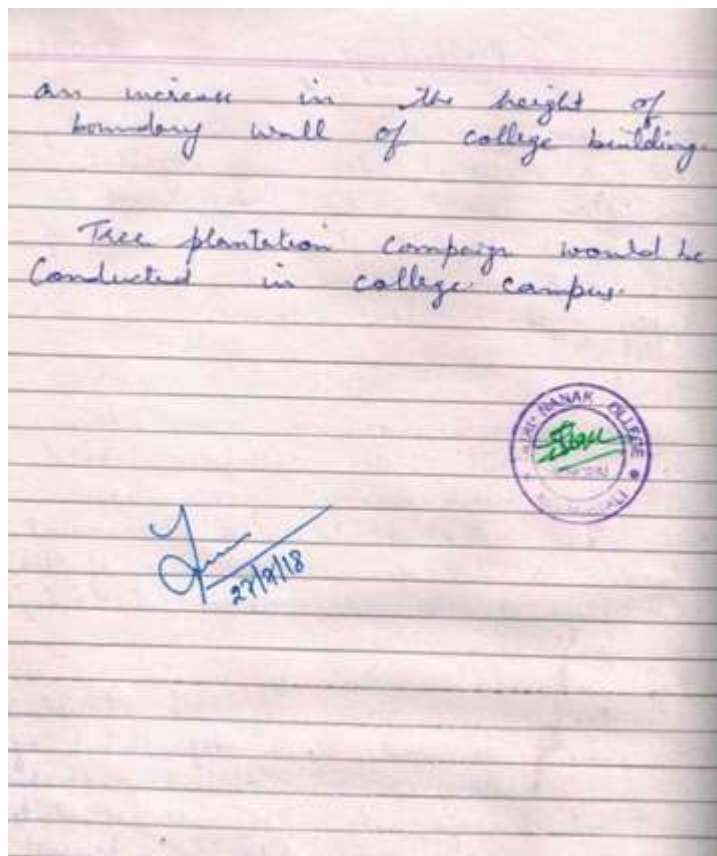 an increase in the height of
boundary wall of college building.
Tree plantation compaign would be
Conducted in college campus.
NANAK COLLEGE